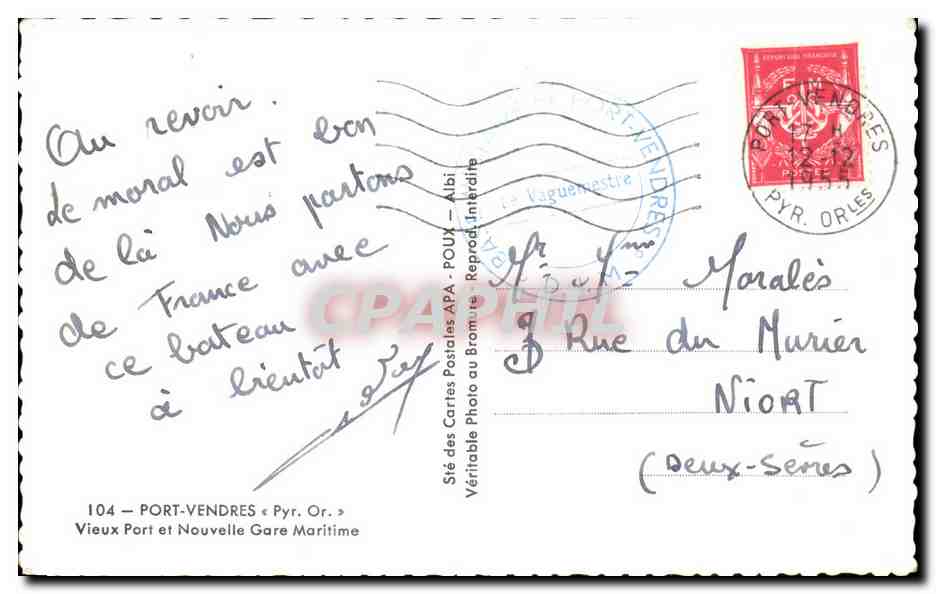 Au revoir.
Le moral est bon
de là Nous partons
de France avec
ce bateau
à bientôt
104 — PORT-VENDRES « Pyr. Or. »
Vieux Port et Nouvelle Gare Maritime
Sté des Cartes Postales APA - POUX — Albi
Véritable Photo au Bromure - Reprod. Interdite
PORT-VENDRES
Vaguemestre
REPUBLIQUE FRANÇAISE
F M
PORT-VENDRES
17 H
12-12
1955
PYR. ORLES
Mr Mme Moralès
3 Rue du Murier
NIORT
(Deux-Sèvres)
CPAPHIL